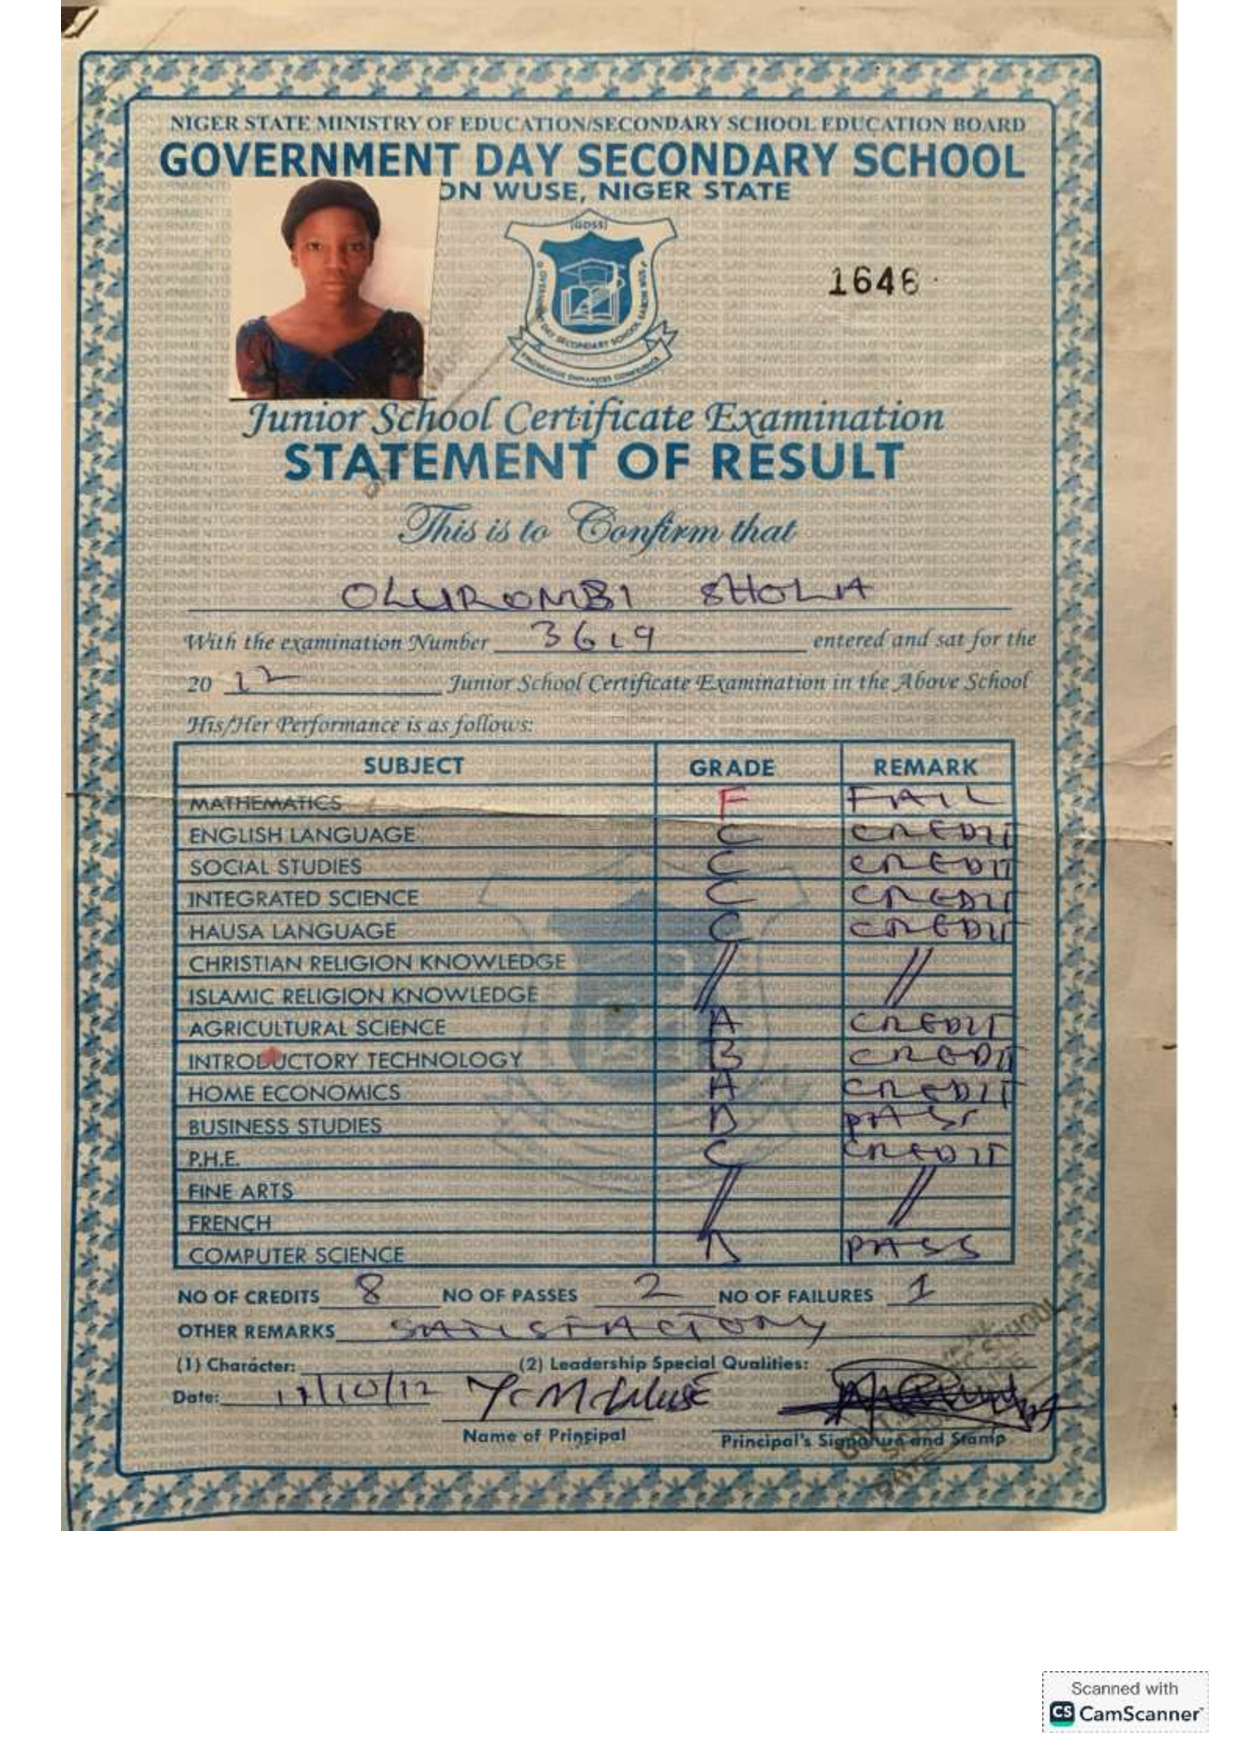 NIGER STATE MINISTRY OF EDUCATION/SECONDARY SCHOOL EDUCATION BOARD
GOVERNMENT DAY SECONDARY SCHOOL
ON WUSE, NIGER STATE
(GDSS)
1646
Junior School Certificate Examination
STATEMENT OF RESULT
This is to Confirm that
OLUROMBI SHOLA
With the examination Number 3619 entered and sat for the
20 12 Junior School Certificate Examination in the Above School
His/Her Performance is as follows:
SUBJECT GRADE REMARK
MATHEMATICS F FAIL
ENGLISH LANGUAGE C CREDIT
SOCIAL STUDIES C CREDIT
INTEGRATED SCIENCE C CREDIT
HAUSA LANGUAGE C CREDIT
CHRISTIAN RELIGION KNOWLEDGE // //
ISLAMIC RELIGION KNOWLEDGE
AGRICULTURAL SCIENCE A CREDIT
INTRODUCTORY TECHNOLOGY B CREDIT
HOME ECONOMICS A CREDIT
BUSINESS STUDIES D PASS
P.H.E. C CREDIT
FINE ARTS // //
FRENCH
COMPUTER SCIENCE D PASS
NO OF CREDITS 8 NO OF PASSES 2 NO OF FAILURES 1
OTHER REMARKS SATISFACTORY
(1) Character: (2) Leadership Special Qualities:
Date: 17/10/12
Name of Principal Principal's Signature and Stamp
Scanned with
CS CamScanner